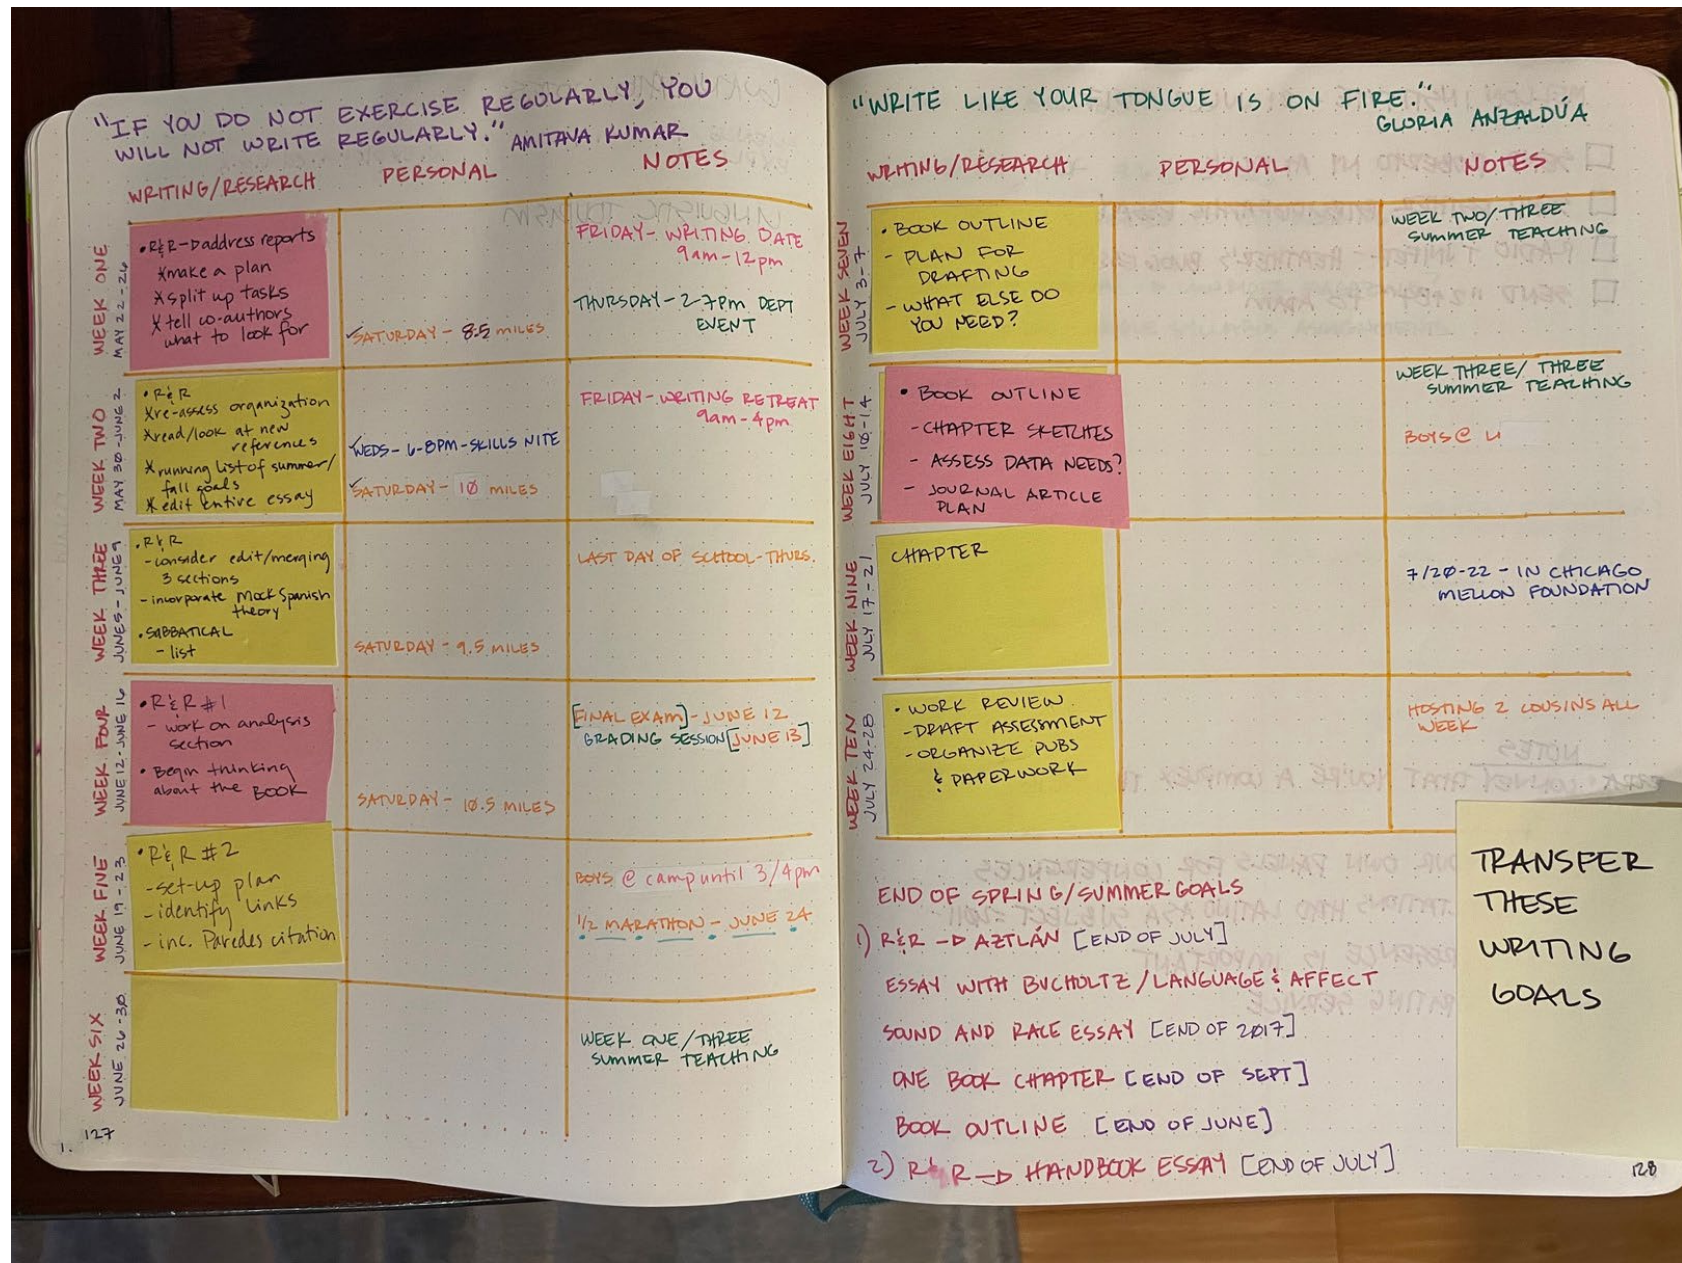 "IF YOU DO NOT EXERCISE REGULARLY, YOU
WILL NOT WRITE REGULARLY." AMITAVA KUMAR
WRITING/RESEARCH
PERSONAL
NOTES
WEEK ONE
MAY 22-26
• R&R → address reports
x make a plan
x split up tasks
x tell co-authors
what to look for
✓SATURDAY - 8.5 MILES
FRIDAY - WRITING DATE
9am-12pm
THURSDAY - 2-7pm DEPT
EVENT
WEEK TWO
MAY 30-JUNE 2
• R&R
x re-assess organization
x read/look at new
references
x running list of summer/
fall goals
x edit entire essay
✓WEDS - 6-8PM - SKILLS NITE
✓SATURDAY - 10 MILES
FRIDAY - WRITING RETREAT
9am-4pm
WEEK THREE
JUNE 5 - JUNE 9
• R&R
- consider edit/merging
3 sections
- incorporate Mock Spanish
theory
• SABBATICAL
- list
SATURDAY - 9.5 MILES
LAST DAY OF SCHOOL - THURS.
WEEK FOUR
JUNE 12 - JUNE 16
• R&R #1
- work on analysis
section
• Begin thinking
about the BOOK
SATURDAY - 10.5 MILES
[FINAL EXAM] - JUNE 12
GRADING SESSION [JUNE 13]
WEEK FIVE
JUNE 19 - 23
• R&R #2
- set-up plan
- identify links
- inc. Paredes citation
BOYS @ camp until 3/4pm
1/2 MARATHON - JUNE 24
WEEK SIX
JUNE 26-30
WEEK ONE/THREE
SUMMER TEACHING
127
"WRITE LIKE YOUR TONGUE IS ON FIRE."
GLORIA ANZALDÚA
WRITING/RESEARCH
PERSONAL
NOTES
WEEK SEVEN
JULY 3-7
• BOOK OUTLINE
- PLAN FOR
DRAFTING
- WHAT ELSE DO
YOU NEED?
WEEK TWO/THREE
SUMMER TEACHING
WEEK EIGHT
JULY 10-14
• BOOK OUTLINE
- CHAPTER SKETCHES
- ASSESS DATA NEEDS?
- JOURNAL ARTICLE
PLAN
WEEK THREE/THREE
SUMMER TEACHING
BOYS @
WEEK NINE
JULY 17-21
CHAPTER
7/20-22 - IN CHICAGO
MELLON FOUNDATION
WEEK TEN
JULY 24-28
• WORK REVIEW
- DRAFT ASSESSMENT
- ORGANIZE PUBS
& PAPERWORK
HOSTING 2 COUSINS ALL
WEEK
END OF SPRING/SUMMER GOALS
1) R&R → AZTLÁN [END OF JULY]
ESSAY WITH BUCHOLTZ/LANGUAGE & AFFECT
SOUND AND RACE ESSAY [END OF 2017]
ONE BOOK CHAPTER [END OF SEPT]
BOOK OUTLINE [END OF JUNE]
2) R&R → HANDBOOK ESSAY [END OF JULY]
TRANSFER
THESE
WRITING
GOALS
128